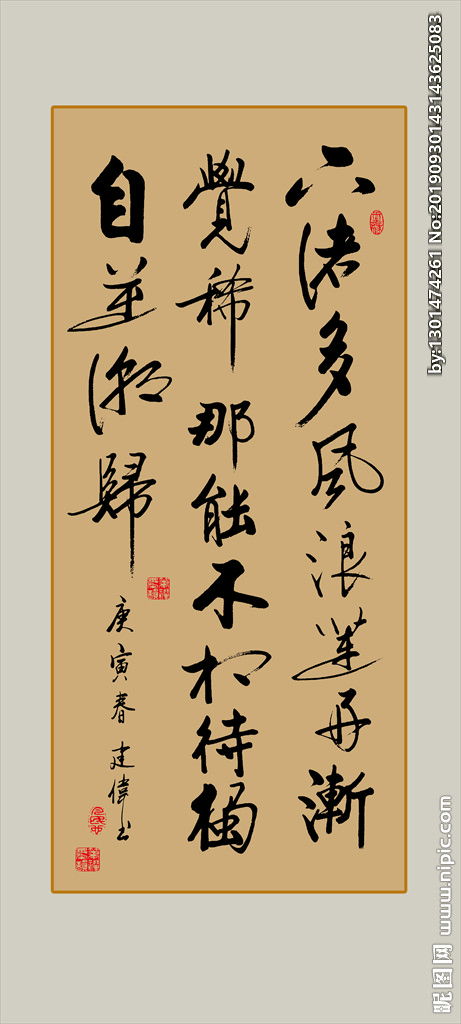 下渚多風浪蓮舟漸
覺稀那能不相待獨
自逆潮歸
庚寅春 建偉书
by:1301474261 No:20190930143143625083
昵图网 www.nipic.com